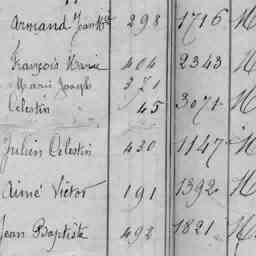 Armand Jean Mie 298 1716 M
François Marie 404 2343 M
Marie Joseph 371
Célestin 45 3071 M
Julien Célestin 430 1147 M
Aimé Victor 191 1392 M
Jean Baptiste 492 1821 M